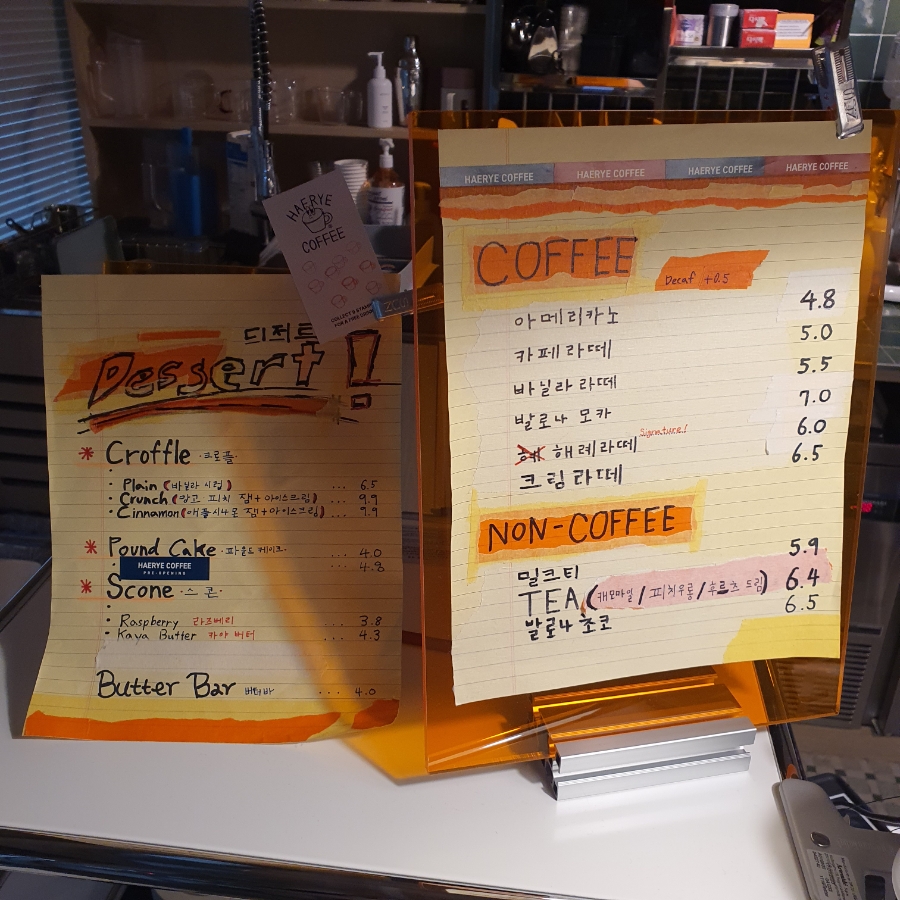 HAERYE
COFFEE
COLLECT 8 STAMPS
FOR A FREE DRINK
디저트
Dessert!
* Croffle ·크로플·
· Plain (바닐라 시럽) ... 6.5
· Crunch (망고 피치 잼+아이스크림) ... 9.9
· Cinnamon (애플시나몬 잼+아이스크림) ... 9.9
* Pound Cake ·파운드 케이크· ... 4.0
HAERYE COFFEE ... 4.8
PRE-OPENING
* Scone ·스콘·
· Raspberry 라즈베리 ... 3.8
· Kaya Butter 카야 버터 ... 4.3
Butter Bar 버터바 ... 4.0
HAERYE COFFEE HAERYE COFFEE HAERYE COFFEE HAERYE COFFEE
COFFEE
Decaf +0.5
아메리카노 4.8
카페라떼 5.0
바닐라 라떼 5.5
발로나 모카 7.0
해례라떼 Signature! 6.0
크림라떼 6.5
NON-COFFEE
밀크티 5.9
TEA (캐모마일/피치우롱/후르츠 드림) 6.4
발로나 쵸코 6.5